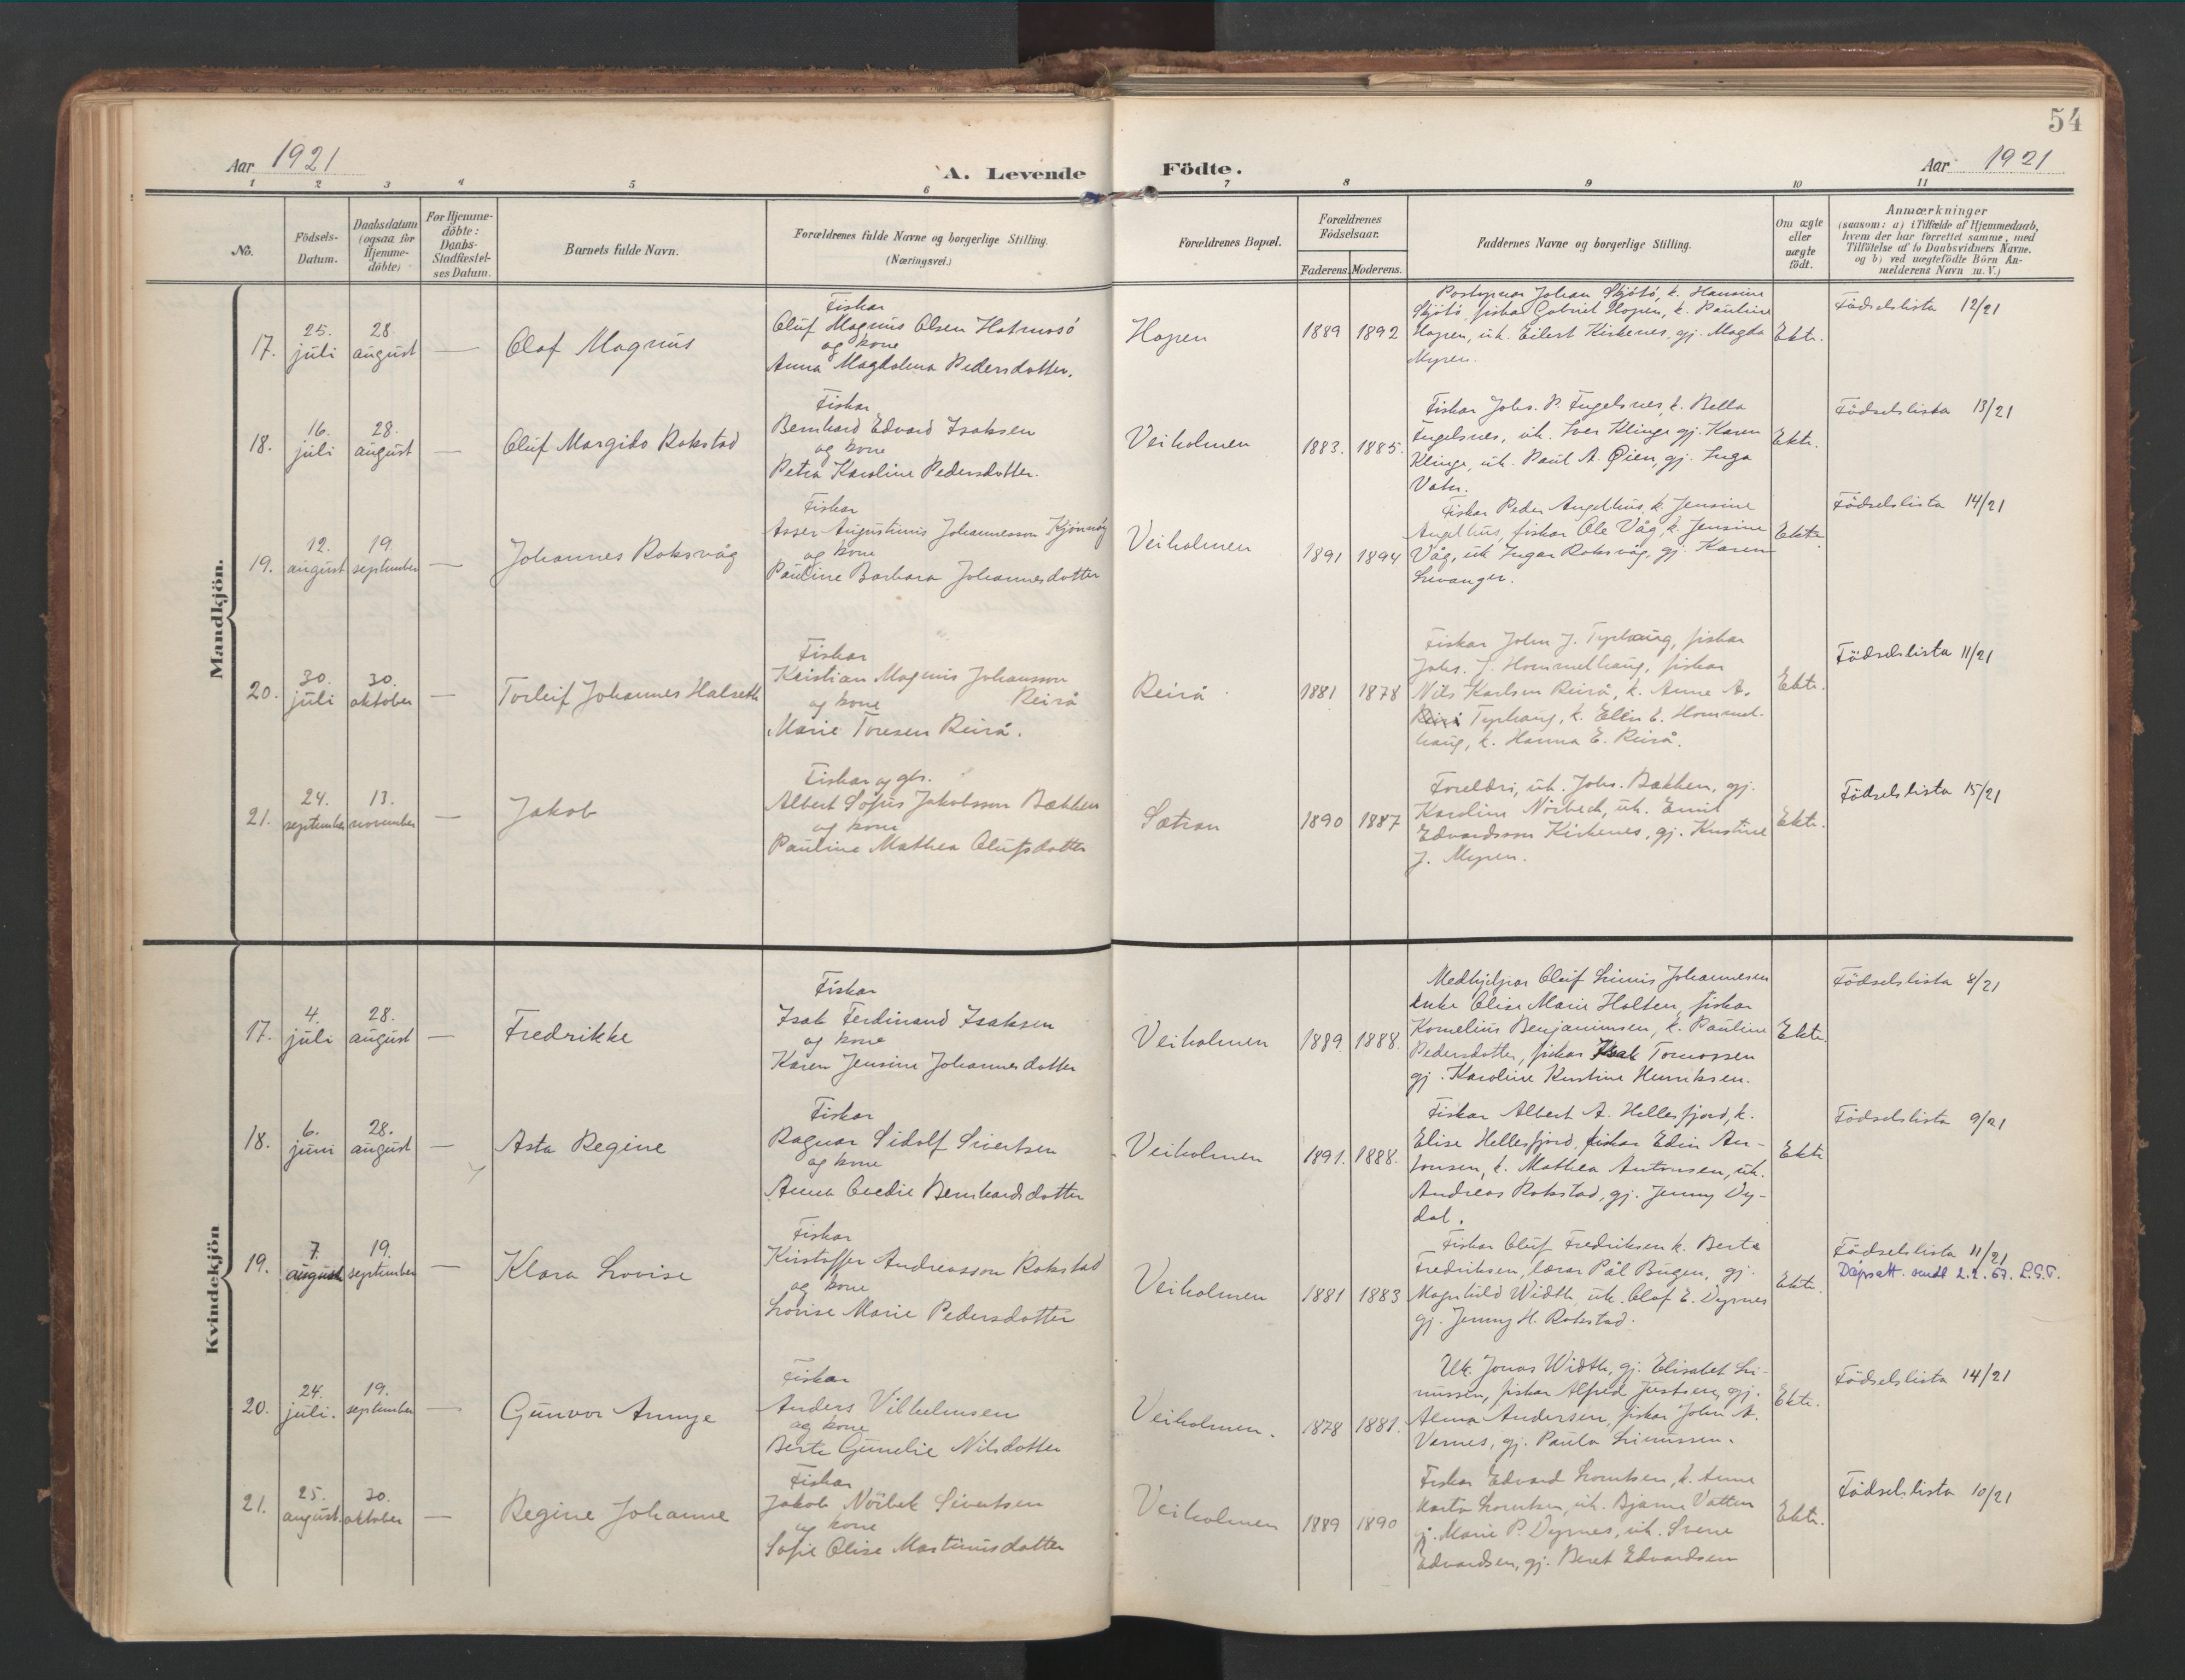 54
Aar 1921
A. Levende Födte.
Aar 1921
1 2 3 4 5 6 7 8 9 10 11
No.
Födsels-
Datum.
Daabsdatum
(ogsaa for
Hjemme-
döbte)
For Hjemme-
döbte:
Daabs-
Stadfæstel-
ses Datum.
Barnets fulde Navn.
Forældrenes fulde Navne og borgerlige Stilling.
(Næringsvei.)
Forældrenes Bopæl.
Forældrenes
Födselsaar.
Faderens. Moderens.
Faddernes Navne og borgerlige Stilling.
Om ægte
eller
uægte
födt.
Anmærkninger
(saasom: a) i Tilfælde af Hjemmedaab,
hvem der har forrettet samme, med
Tilföielse af to Daabsvidners Navne.
og b) ved uægtefödte Börn An-
melderens Navn m. V.)
Mandkjön.
17.
25.
juli
28.
august
—
Olaf Magnus
Fiskar
Oluf Magnus Olsen Hatmosö
og kone
Anna Magdalena Pedersdotter.
Hopen
1889 1892
Johan Skjötö, k. Hansine
Skjötö, fiskar Gabriel Hopen, k. Pauline
Hopen, uk. Eilert Kirkenes, gj. Magda
Myren.
Ekte.
Födselslista 12/21
18.
16.
juli
28.
august
—
Oluf Margido Rokstad
Fiskar
Bernhard Edvard Isaksen
og kone
Petra Karoline Pedersdotter.
Veiholmen
1883. 1885.
Fiskar Johs. P. Fugelsnes, k. Bella
Fugelsnes, uk. Iver Klinge gj. Karen
Klinge, uk. Paul A. Öien, gj. Inga
Vatn.
Ekte.
Födselslista 13/21
19.
12.
august
19.
september
—
Johannes Roksvåg
Fiskar
Asser Augustinus Johannesson Kjönnöy
og kone
Pauline Barbara Johannesdotter
Veiholmen
1891 1894
Fiskar Peder Angelhus, k. Jensine
Angelhus, fiskar Ole Våg, k. Jensine
Våg, uk Ingar Roksvåg, gj. Karen
Levanger.
Ekte
Födselslista 14/21
20.
30.
juli
30.
oktober
—
Torleif Johannes Halseth
Fiskar
Kristian Magnus Johansson
Reirå
og kone
Marie Toresen Reirå.
Reirå
1881 1878
Fiskar John J. Typhaug, fiskar
Johs. J. Hommelhaug, fiskar
Nils Karlsen Reirå, k. Anne A.
Typhaug, k. Elen E. Hommel-
haug, k. Hanna E. Reirå.
Ekte.
Födselslista 11/21
21.
24.
september
13.
november
—
Jakob
Fiskar og gbr.
Albert Sofus Jakobsson Bækken
og kone
Pauline Mathea Olufsdotter
Sætran
1890 1887
Foreldri, uk. Johs. Bækken, gj.
Karoline Nörbech, uk. Emil
Edvardsson Kirkenes, gj. Kristine
J. Myren.
Ekte.
Födselslista 15/21
Kvindekjön
17.
4.
juli
28.
august
—
Fredrikke
Fiskar
Isak Ferdinand Isaksen
og kone
Karen Jensine Johannesdotter
Veiholmen
1889. 1888.
Medhjelpar Oluf Linius Johannesen
enke Olise Marie Holten, fiskar
Kornelius Benjaminsen, k. Pauline
Pedersdotter, fiskar Isak Tomassen
gj. Karoline Kristine Henriksen.
Ekte.
Födselslista 8/21
18.
6.
juni
28.
august
—
Asta Regine
Fiskar
Ragnar Sidolf Sivertsen
og kone
Anna Bernhardsdotter
Veiholmen
1891. 1888.
Fiskar Albert A. Hellesfjord, k.
Elise Hellesfjord, fiskar Edin An-
tonsen, k. Mathea Antonsen, uk.
Andreas Rokstad, gj. Jenny Dy-
dal.
Ekte
Födselslista 9/21
19.
7.
august
19.
september
—
Klara Lovise
Fiskar
Kristoffer Andreasson Rokstad
og kone
Lovise Marie Pedersdotter
Veiholmen
1881 1883
Fiskar Oluf Fredriksen k. Berta
Fredriksen, lærar Pål Bugen, gj.
Magnhild Width, uk. Olaf E. Dyrnes
gj. Jenny H. Rokstad.
Ekte.
Födselslista 11/21
Dåpsatt. sendt 2.2.67.
20.
24.
juli.
19.
september
—
Gunvor Annye
Fiskar
Anders Vilhelmsen
og kone
Berte Gunelie Nilsdotter
Veiholmen.
1878 1881.
Uk. Jonas Width, gj. Elisabet Li-
nussen, fiskar Alfred Justsen, gj.
Alma Andersen, fiskar John A.
Varnes, gj. Paula Linussen.
Ekte.
Födselslista 14/21
21.
25.
august.
30.
oktober
—
Regine Johanne
Fiskar
Jakob Nörbek Sivertsen
og kone
Sofie Olise Martinusdotter
Veiholmen
1889 1890
Fiskar Edvard Lorntsen, k. Anne
Marta Lorntsen, uk. Bjarne Vatten
gj. Marie P. Dyrnes, uk. Sverre
Edvardsen, gj. Beret Edvardsen
Ekte.
Födselslista 10/21